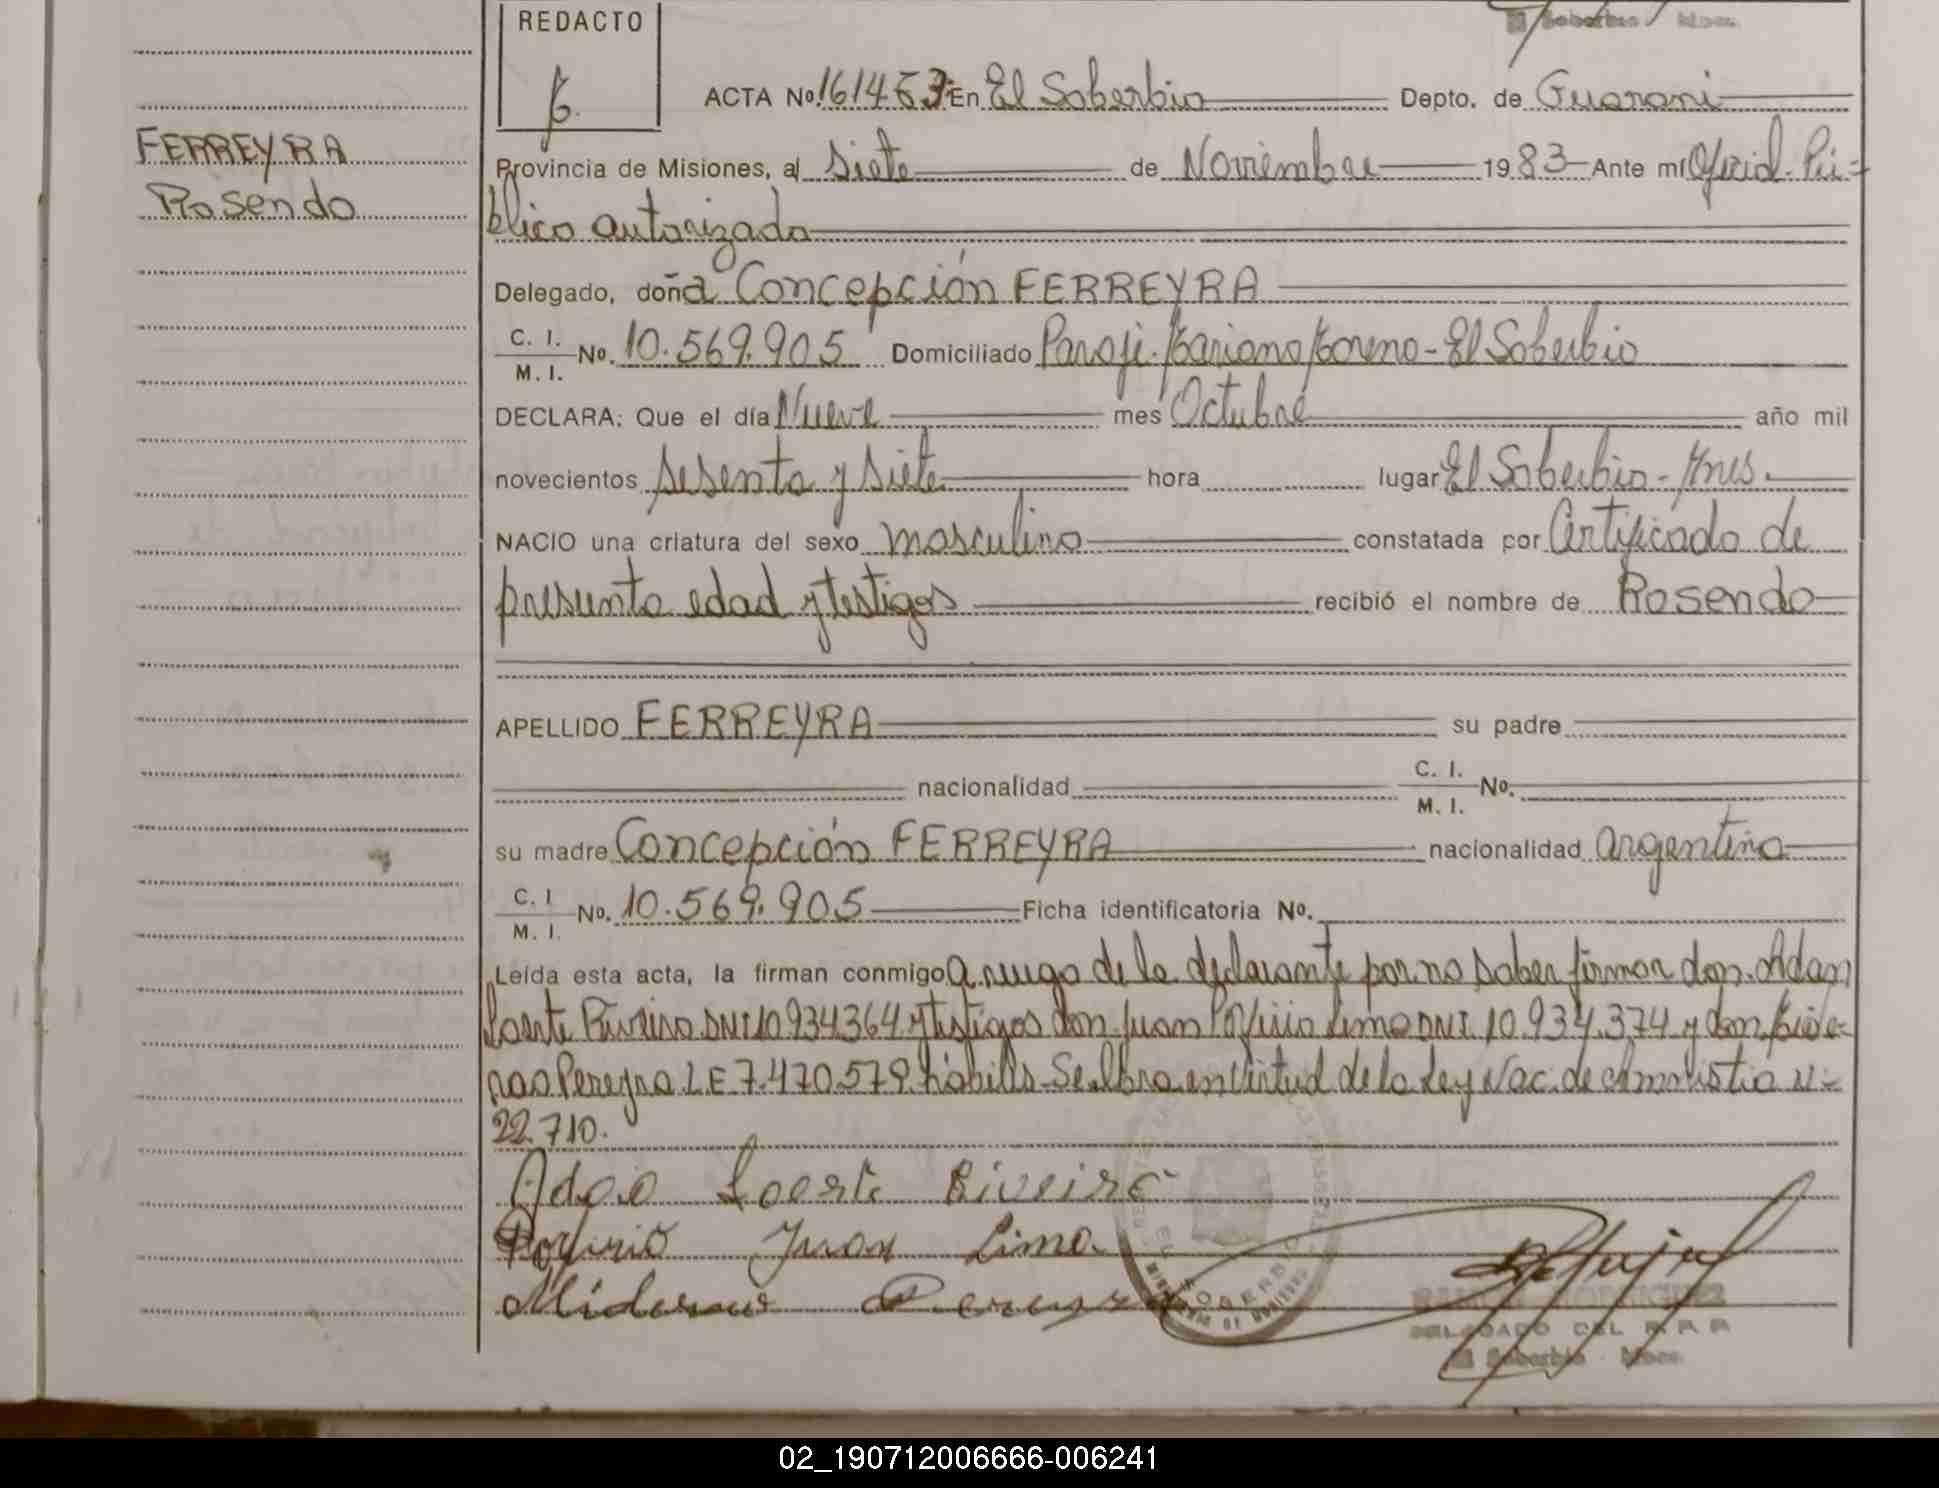 REDACTO
El Soberbio Mnes.
ACTA No. 161453 En El Soberbio Depto. de Guarani
FERREYRA
Rosendo
Provincia de Misiones, al Siete de Noviembre 1983 Ante mí Oficial Pú-
blico autorizado
Delegado, doña Concepción FERREYRA
C. I.
M. I. No. 10.569.905 Domiciliado Paraje Mariano Moreno - El Soberbio
DECLARA: Que el día Nueve mes Octubre año mil
novecientos sesenta y siete hora lugar El Soberbio - Mnes.
NACIO una criatura del sexo masculino constatada por Certificado de
presunta edad y testigos recibió el nombre de Rosendo
APELLIDO FERREYRA su padre
nacionalidad C. I.
M. I. No.
su madre Concepción FERREYRA nacionalidad argentina
C. I
M. I. No. 10.569.905 Ficha identificatoria No.
Leída esta acta, la firman conmigo a ruego de la declarante por no saber firmar don Adan
Riveiro DNI 10.934.364 y testigos don Juan Porfirio Lima DNI. 10.934.374 y don
Pereyra L E 7.470.579 hábiles Se labra en virtud de la Ley Nac. de amnistia N-
22.710.
Riveiro
Porfirio Juan Lima
EL SOBERBIO
DELEGADO DEL R P P
El Soberbio Mnes.
02_190712006666-006241